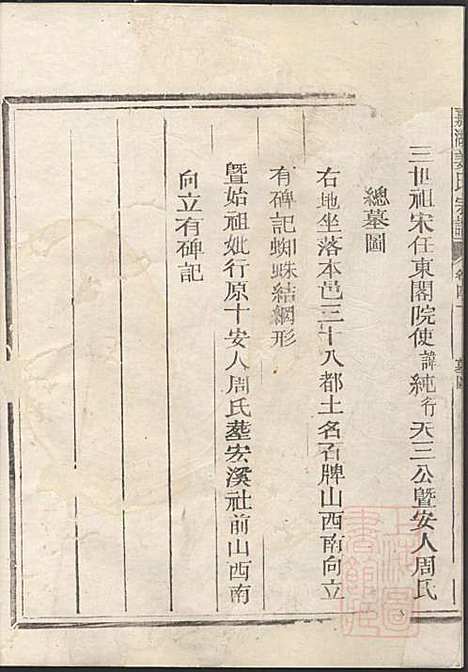 氏宗譜
三世祖宋任東閣院使諱純行天三公曁安人周氏
總墓圖
右地坐落本邑三十八都土名石牌山西南向立
有碑記蜘蛛結網形
曁始祖妣行原十安人周氏塟宏溪社前山西南
向立有碑記